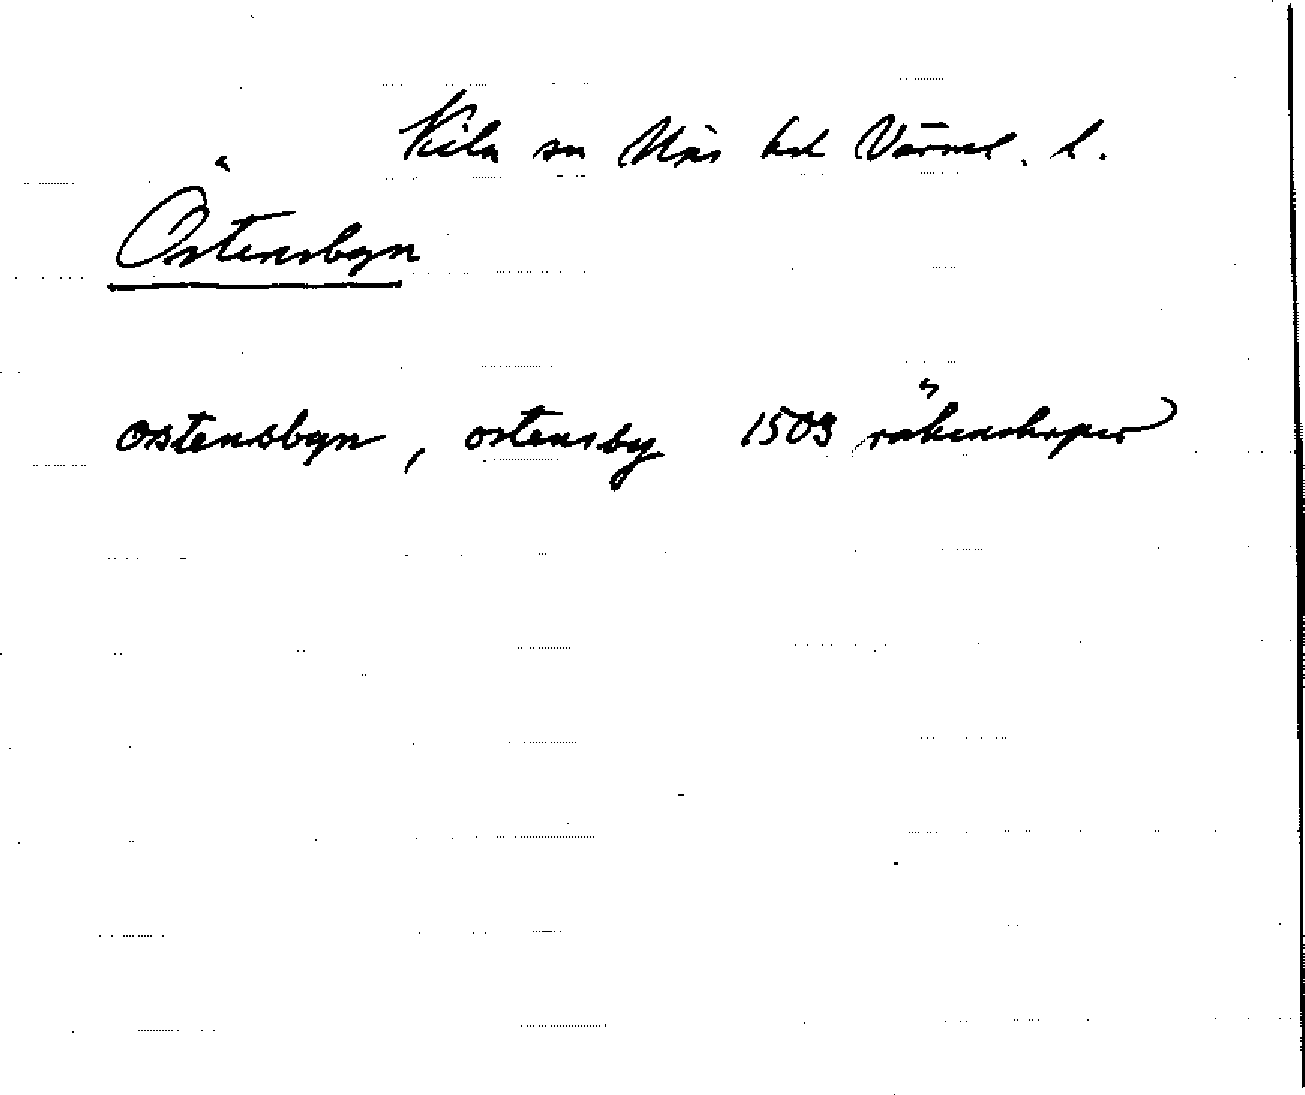 Kila sn Näs hd Värml. l.
Östensbyn
ostensbyn, ostensby 1503 räkenskaper